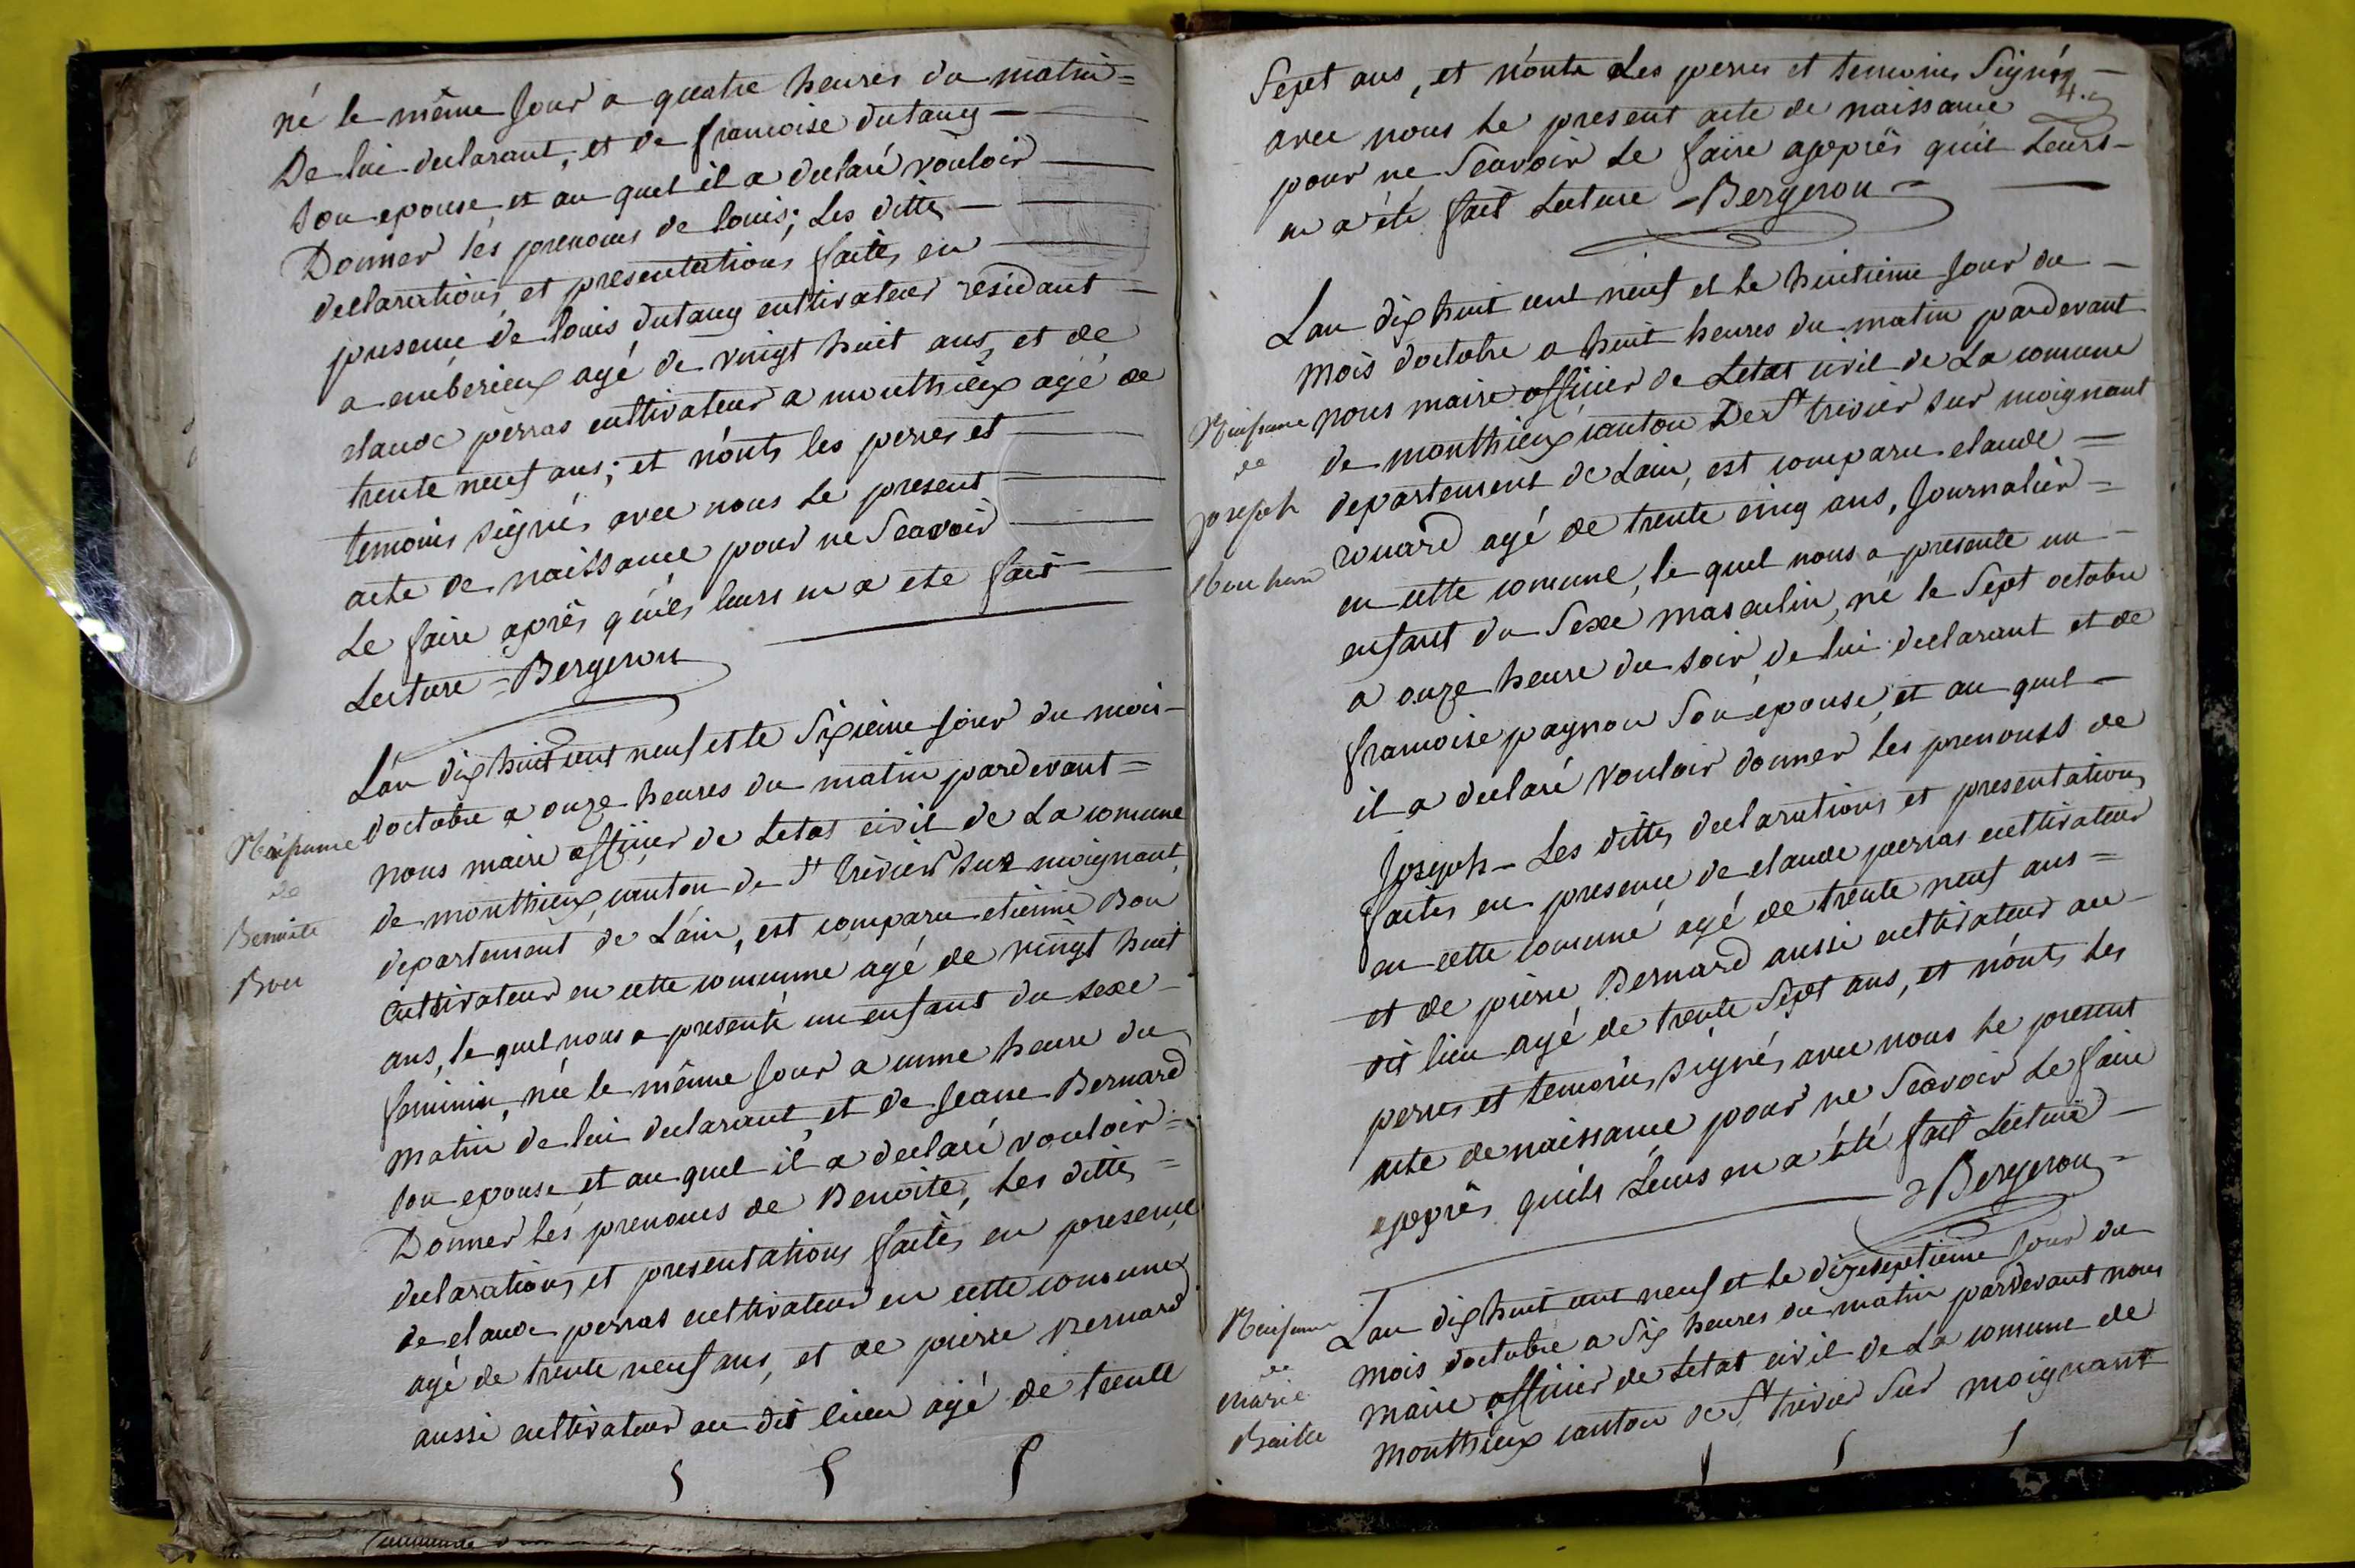 né le même jour a quatre heures du matin =
De lui declarant, et de francoise dutang —
son epouse et au quel il a declaré vouloir
Donner les prenoms de louis; Les dittes —
declarations, et presentations faites en
presence de louis dutang cultivateur residant =
a amberieux agé de vingt huit ans, et de
claude perras cultivateur a monthieux agé de
trente neuf ans; et n'onts les perres et
temoins signés avec nous le present
acte de naissance pour ne Scavoir
Le faire aprés qu'ils leurs en a eté fait
Lecture = Bergeron
L'an dix huit cent neuf et le Sixieme jour du mois —
d'octobre a onze heures du matin pardevant =
nous maire officier de Letat civil de La comune
de monthieux, canton de St trivier sur moignant,
departement de L'ain, est comparu etienne Bon
Cultivateur en cette comunne agé de vingt huit
ans, le quel nous a presenté un enfant du sexe —
feminin, née le même jour a unne heure du
matin de lui declarant, et de jeane Bernard
son epouse et au quel il a declaré vouloir =
Donner les prenoms de Benoite, Les dittes =
declarations et presentations faites en presence
de claude perras cultivateur en cette comunne
agé de trente neuf ans, et de pierre Bernard
aussi cultivateur au dit lieu agé de trente
Naissance
de
Benoite
Bon
Sept ans, et n'onts Les perres et temoins Signés —
avec nous le present acte de naissance
pour ne Scavoir Le faire apprés quil Leurs —
en a été fait Lecture = Bergeron =
4.
Lan dix huit cent neuf et le huitieme jour du —
mois d'octobre a huit heures du matin pardevant
nous maire officier de Letat civil de La comune
de monthieux canton De St trivier sur moignant
departement de Lain, est comparu claude =
rouard agé de trente cinq ans, Journalier =
en cette comune, le quel nous a presenté un —
enfant du Sexe masculin, né le Sept octobre
a onze heure du soir de lui declarant et de
francoise pagnon Son epouse, et au quel —
il a declaré vouloir donner les prenoms de
Joseph — Les dittes declarations et presentations
faites en presence de claude perras cultivateur
en cette comune agé de trente neuf ans =
et de pierre Bernard aussi cultivateur au —
dit lieu agé de trente Sept ans, et n'onts Les
perres et temoins signés avec nous le present
acte de naissance pour ne Scavoir Le faire
apprés quils Leurs en a été fait Lecture —
= Bergeron =
Naissance
de
joseph
Lan dix huit cent neuf et le dixseptieme jour du
mois d'octobre a Six heures du matin pardevant nous
maire officier de Letat civil de La comune de
Monthieux canton de St trivier Sur moignant
Naissance
de
marie